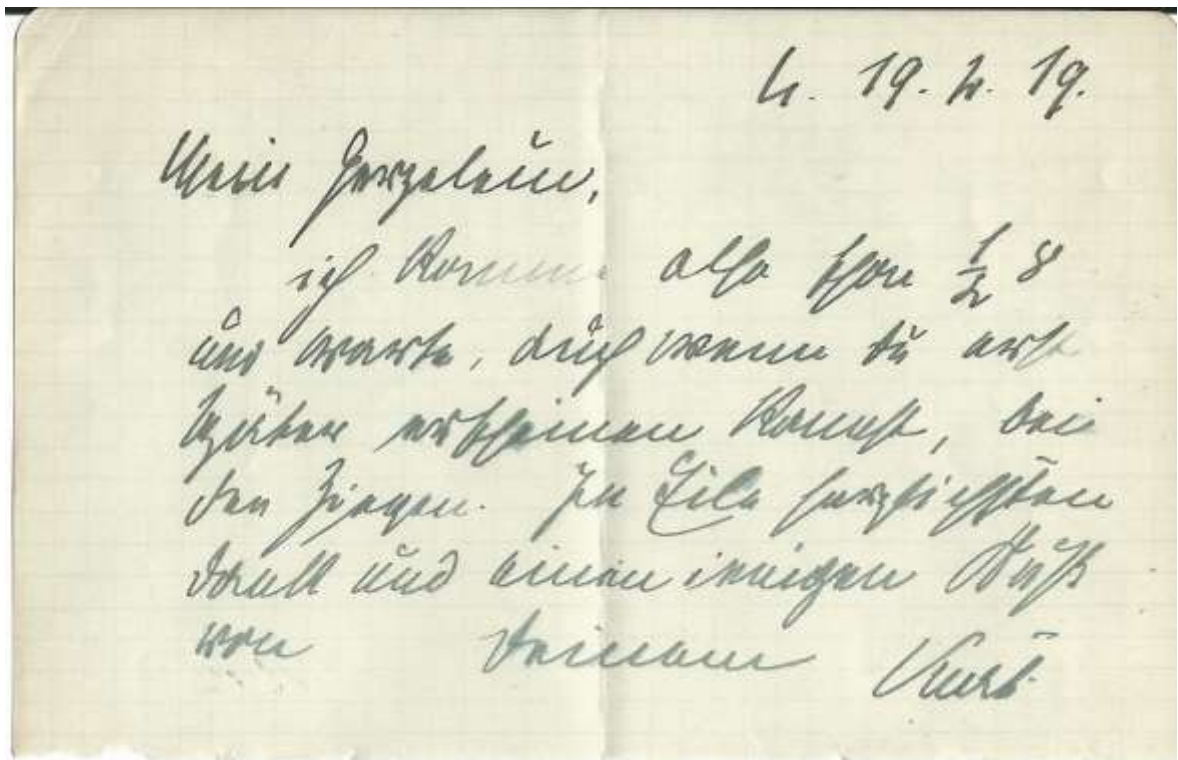 19. 2. 19.
Mein Herzelein,
ich komme also schon ½ 8
und warte, auch wenn du erst
später erscheinen kannst, bei
den Ziegen. In Eile herzlichsten
Dank und einen innigen Kuß
von Deinem Kurt